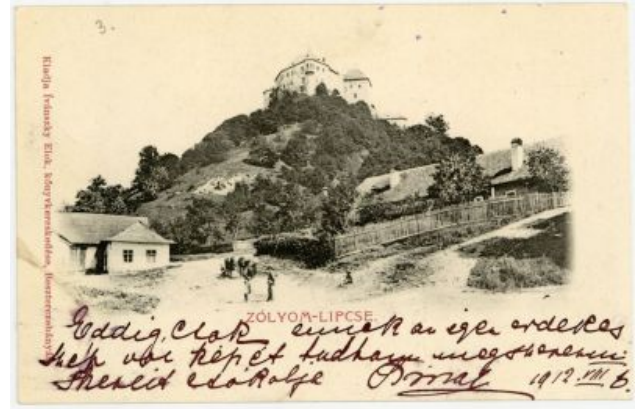 3.
Kiadja Ivánszky Elek, könyvkereskedése, Beszterczebánya
ZÓLYOM-LIPCSE.
Eddig csak ennek az igen érdekes
szép vár képét tudtam megszerezni
csókolja 1912. VIII 6.